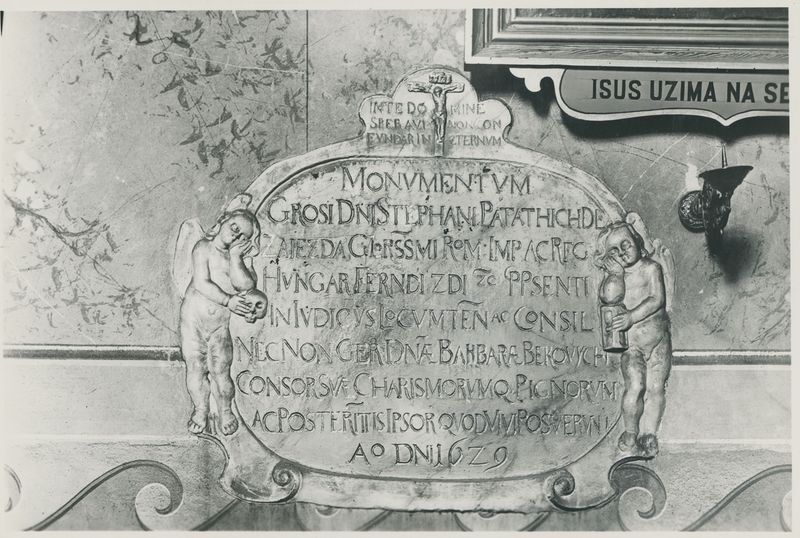 ISUS UZIMA NA SE
IN TE DOMINE
SPERAVI NON CON
FVNDAR IN ÆTERNVM
MONVMENTVM
GROSI DNI STEPHANI PATATHICH DE
ZAIEZDA
HVNGAR FERNDI ZDI ZC PPSENTI
IN IVDICYS LOCVMTEN AC CONSIL
NEC NON GER DNÆ BARBARÆ
CONSOR SVÆ CHARISMORVMQ PIGNORVM
AC POSTERITIS IPSOR QVOD VIVI POSVERVNT
AO DNI 1629